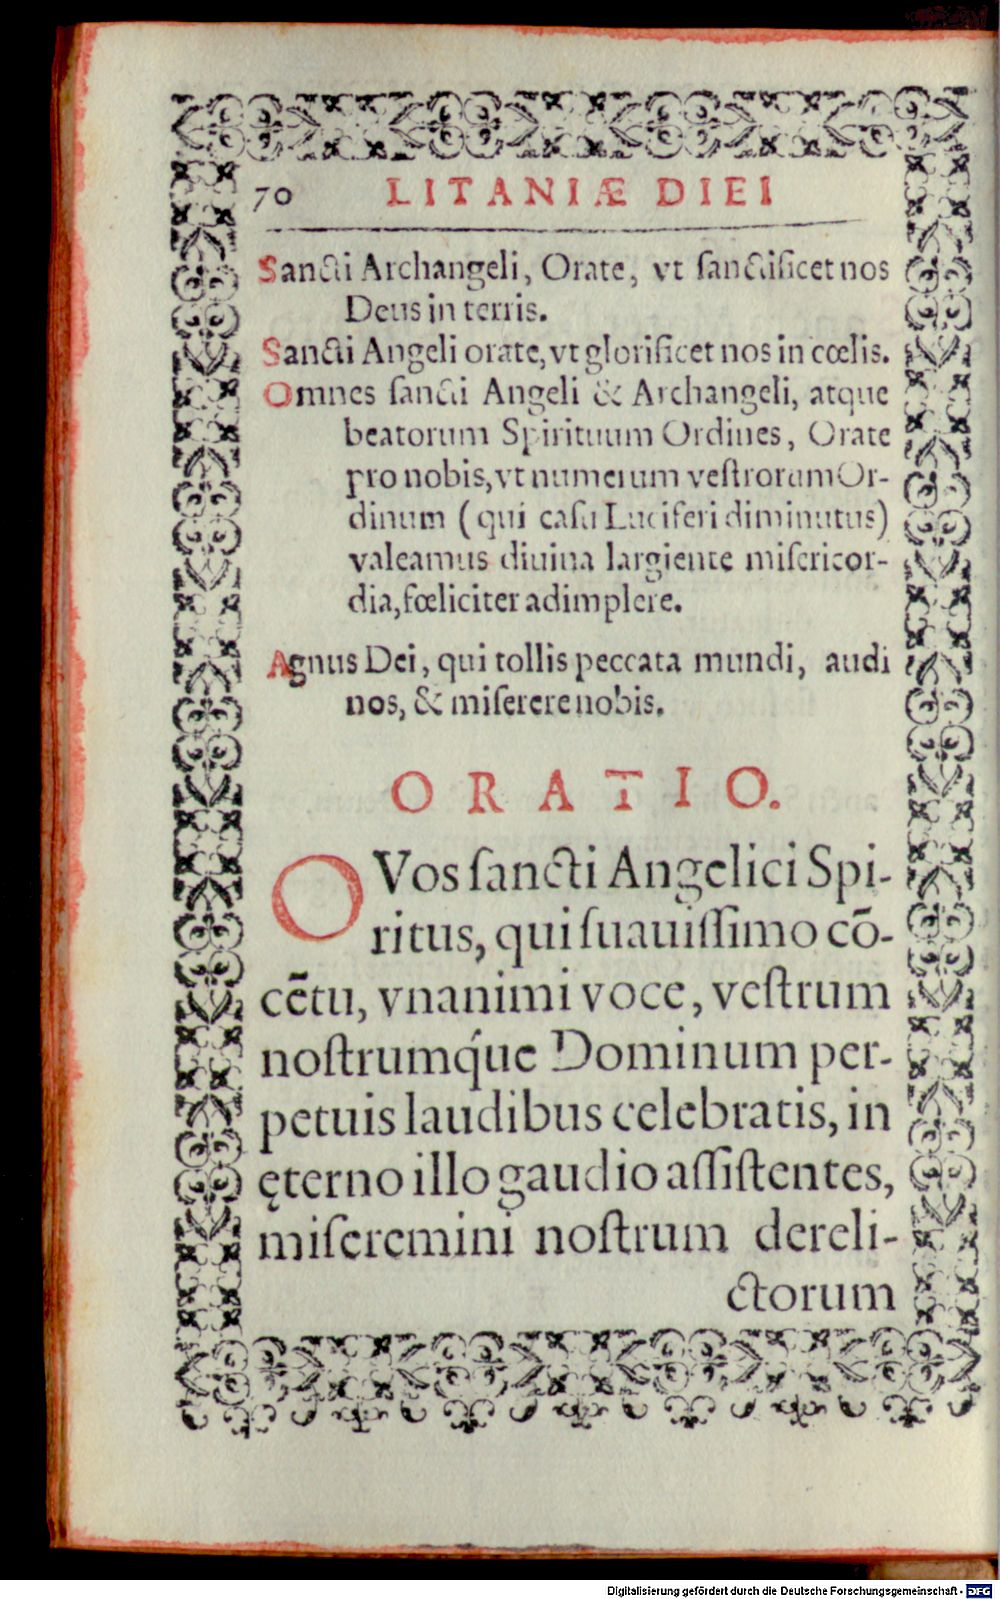 70 LITANIÆ DIEI
Sancti Archangeli, Orate, vt ſanctificet nos
Deus in terris.
Sancti Angeli orate, vt glorificet nos in cœlis.
Omnes ſancti Angeli & Archangeli, atque
beatorum Spirituum Ordines, Orate
pro nobis, vt numerum veſtrorum Or-
dinum (qui caſu Luciferi diminutus)
valeamus diuina largiente miſericor-
dia, fœliciter adimplere.
Agnus Dei, qui tollis peccata mundi, audi
nos, & miſerere nobis.
ORATIO.
O Vos ſancti Angelici Spi-
ritus, qui ſuauiſſimo cō-
cētu, vnanimi voce, veſtrum
noſtrumq́ue Dominum per-
petuis laudibus celebratis, in
ęterno illo gaudio aſſiſtentes,
miſeremini noſtrum dereli-
ctorum
Digitalisierung gefördert durch die Deutsche Forschungsgemeinschaft - DFG